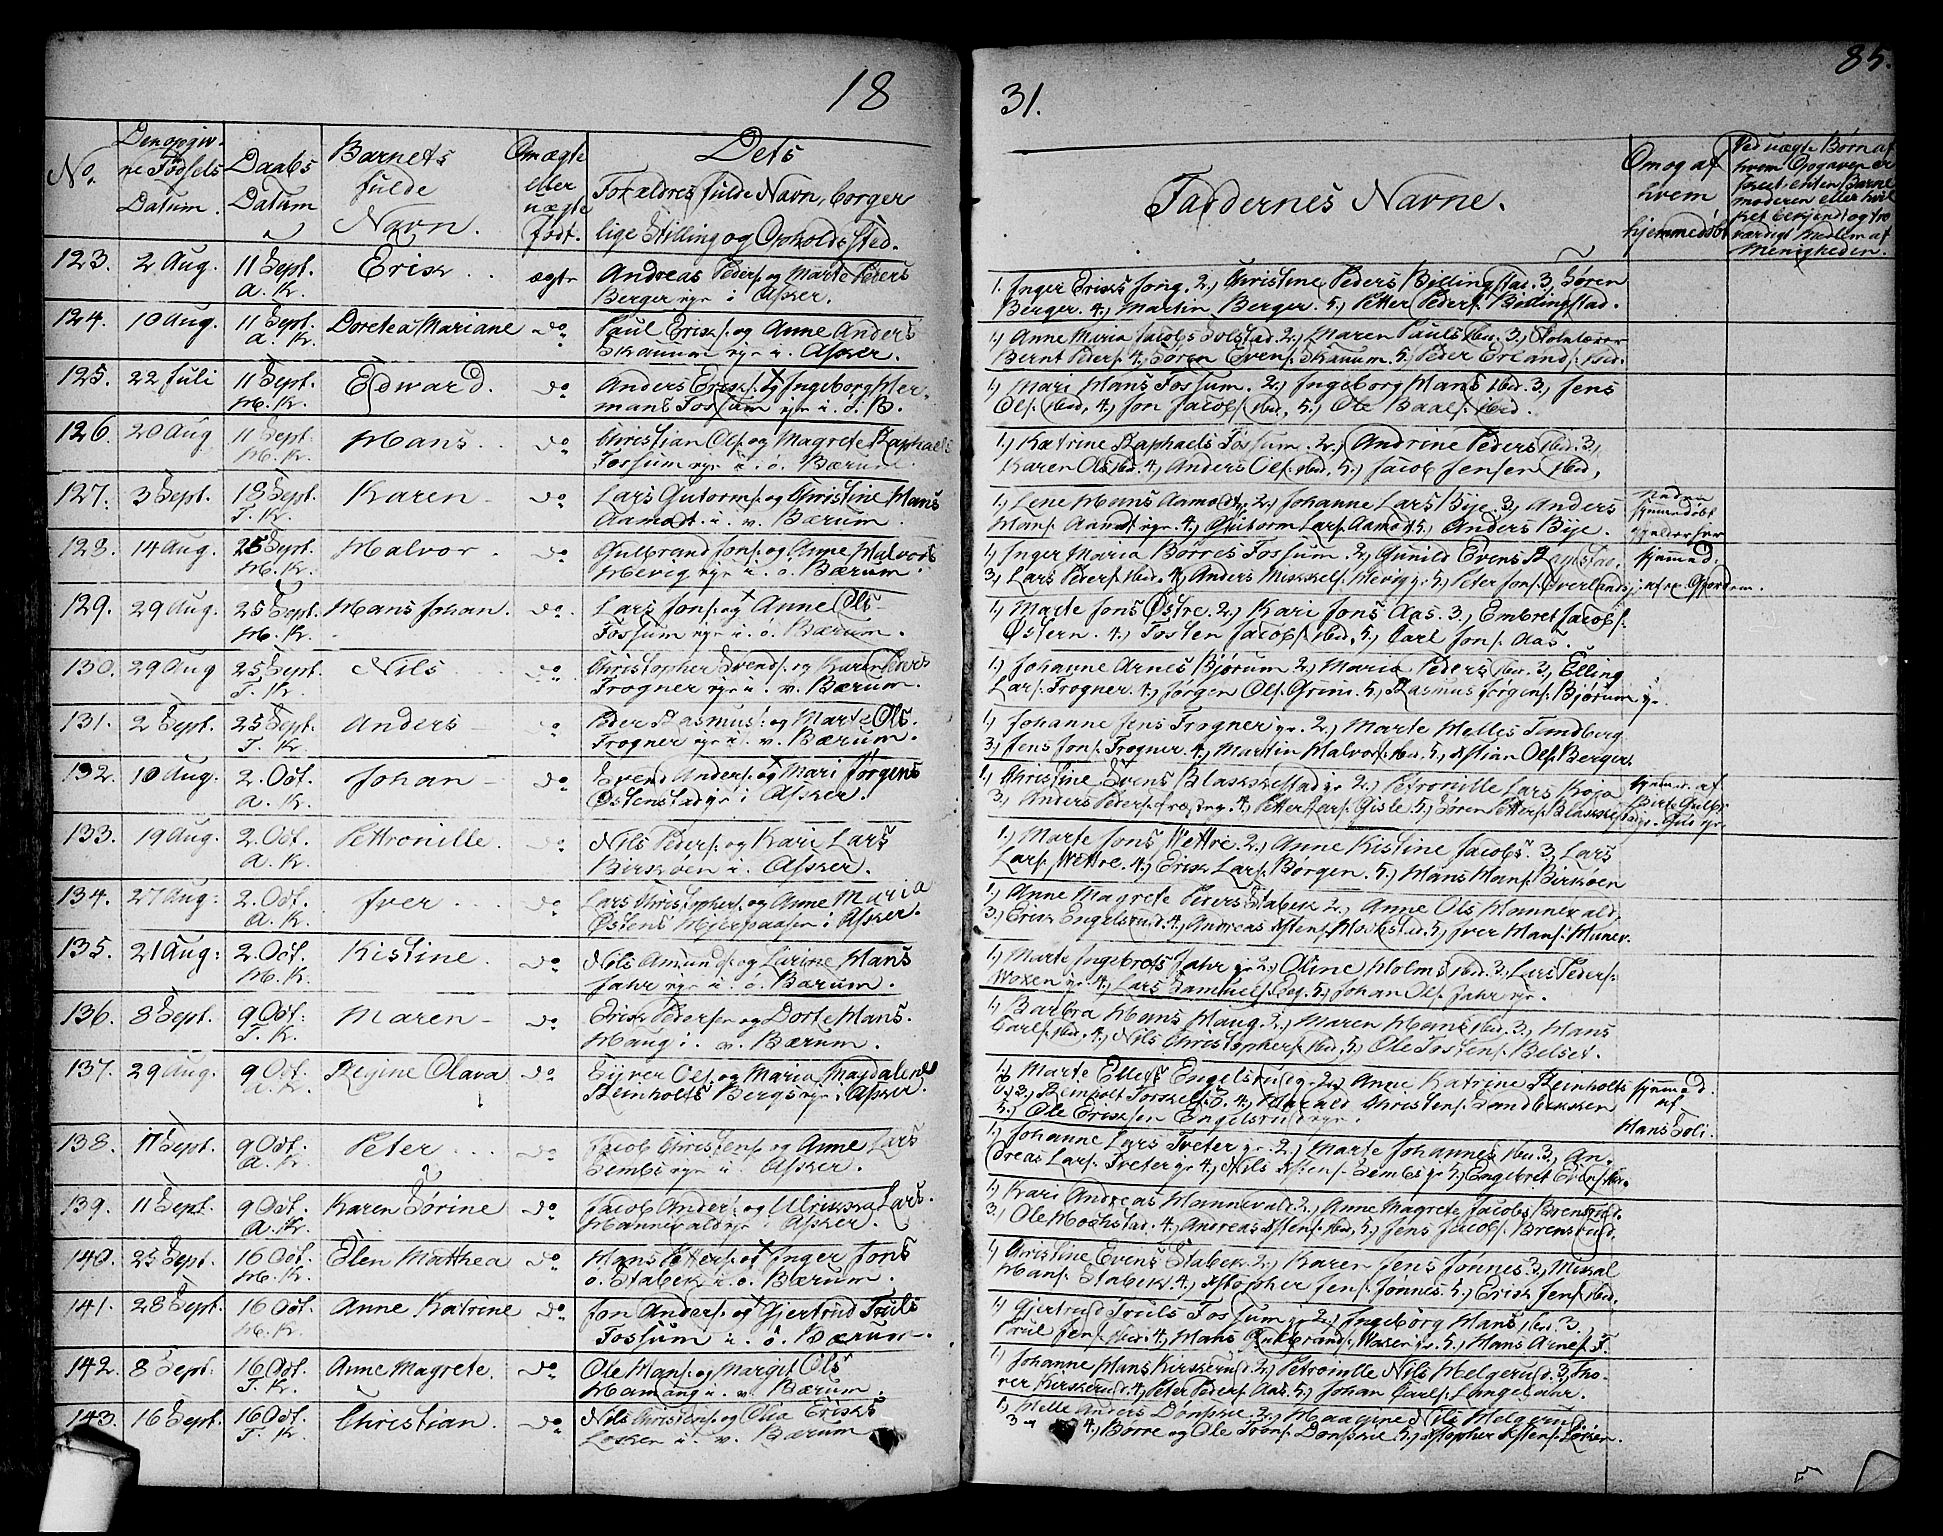 18
31.
85.
No.
Den opgiv-
ne Fødsels
Datum.
Daabs
Datum
Barnets
fulde
Navn.
Om ægte
eller
uægte
født.
Dets
Forældres fulde Navn, borger
lige Stilling og Opholdssted.
Faddernes Navne.
Om og af
hvem
hjemmedøbt
Ved uægte Børn af
hvem Opgaven er
skeet enten Barne
moderen eller hvil
ket bekjendt og tro
værdigt Medlem af
Menigheden.
123. 2 Aug. 11 Sept. Erik ægte Andreas Peders. og Marte Peders
A. K. Berger i Asker.
1. Inger Eriks 2.) Christine Peders Billingstad. 3, Søren
Berger. 4, Martin Berger. 5, Petter Peders. Billingstad.
124. 10 Aug. 11 Sept. Dorte a Mariane do Paul Eriks. og Anne Anders
A. K. Skavum i Asker.
1, Anne Maria Jacobs Solstad. 2, Maren Pauls ibid. 3,
Bernt Peders. 4, Søren Evens. Skaxum. 5, Peder Erlands. ibid.
125. 22 Juli 11 Sept. Edward. do Anders Eriks. og Ingeborg Her-
H. K. mans Fossum i ø. B.
1, Mari Hans Fossum. 2, Ingeborg Hans ibid. 3, Jens
Ols. ibid, 4, Jon Jacobs. ibid, 5, Ole Baals. ibid.
126. 20 Aug 11 Sept. Hans do Christian Ols. og Magrete Raphaels
H. K. Fossum i ø. Bærum.
1, Katrine Raphaels Fossum. 2, Andrine Peders ibid. 3,
Karen Ols ibid. 4, Anders Ols. ibid. 5, Jacob Jensen ibid,
127. 3 Sept. 18 Sept. Karen do Lars Gutorms. og Christine Hans
T. K. Aamodt i v. Bærum.
1, Lene Hans Aamodt, 2, Johanne Lars Bye. 3, Anders
Hans. Aamodt 4, Gutorm Lars. Aamodt 5, Anders Bye.
128. 14 Aug. 25 Sept. Halvor do Gulbrand Jons. og Anne Halvors
H. K. Hevig i ø. Bærum.
1, Inger Maria Børres Fossum. 2, Gunild Evens
3, Lars Peders. ibid. 4, Anders Mikkels. Hevig 5, Peter Jons.
129. 29 Aug. 25 Sept. Hans Johan. do. Lars Jons. og Anne Ols
H. K. Fossum i ø. Bærum.
1, Marte Jons Østre. 2, Kari Jons Aas. 3, Embret Jacobs.
Østern. 4, Tosten Jacobs. ibid. 5, Carl Jons. Aas.
130. 29 Aug 25 Sept. Nils do Christopher Svends. og Karen Peders
T. K. Frogner i v. Bærum.
1, Johanne Arnes Bjørum 2, Maria Peders ibid. 3, Elling
Lars. Frogner. 4, Jørgen Ols. Grini. 5, Rasmus Jørgens. Bjørum
131. 2 Sept. 25 Sept. Anders do Peder Rasmus. og Marte Ols.
T. K. Frogner i v. Bærum.
1, Johanne Jens Frogner 2, Marte Helles Tundberg
3, Jens Jons. Frogner. 4, Martin Halvors. ibid. 5, Ols. Berger.
132. 10 Aug. 2. Oct. Johan do Svend Anders. og Mari Jørgens
A. K. Østenstad i Asker.
1, Christine Svens Blakkestad 2, Petronille Lars Roja
3, Anders Peders. 4, Petter Lars. Gisle. 5, Søren Petters. Blakkestad
133. 19 Aug. 2. Oct. Pettronille do Nils Peders. og Kari Lars
A. K. Birkøen i Asker.
1, Marte Jons Wettre. 2, Anne Kistine Jacobs. 3, Lars
Lars. Wettre. 4, Erik Lars. Børgen. 5, Hans Hans. Birkøen
134. 27 Aug: 2. Oct. Iver do Lars Christophers. og Anne Maria
A. K. Østens i Asker.
1, Anne Magrete Peders Stabek 2, Anne Ols Hannevald,
3, Erik Engelsrud. 4, Andreas 5, Iver Hans.
135. 21 Aug: 2. Oct. Kistine. do Nils Amunds. og Larine Hans
H. K. Jahr i ø. Bærum.
1, Marte Ingebrets Jahr 2, Oline Holms ibid. 3, Lars Peders.
Woxen 4, Lars Samuels. 5, Johan Ols. Jahr
136. 8 Sept. 9 Oct. Maren do Erik Pedersen og Dorte Hans.
T. K. Haug i v. Bærum.
1, Barbra Hans Haug. 2, Maren Hans ibid. 3, Hans
Carls. ibid. 4, Nils Christophers. ibid. 5, Ole Tostens. Belset.
137. 29 Aug. 9 Oct. Regine Olava do Syver Ols. og Maria Magdalene
A. K. Reinholts Berg i Asker.
1, Marte Ellefs Engelsrud 2, Anne Katrine Reinholts
3, Reinholt 4, Harald Christens.
5, Ole Eriksen Engelsrud
hjemmed.
af
Hans Soli.
138. 17 Sept. 9 Oct. Peter do Jacob Christens. og Anne Lars
A. K. Sembs i Asker.
1, Johanne Lars Tveter 2, Marte Johannes ibid. 3, An-
dreas Lars. Tveter 4, Nils Sembs 5, Engebret Evens.
139. 11 Sept. 9 Oct. Karen Sørine do Jacob Anders. og Ulrikka Lars.
A. K. Hannevald i Asker.
1, Kari Andreas Hannevald. 2, Anne Magrete Jacobs Brensrud.
3, Ole Hochstad. 4, Andreas ibid, 5, Jens Jacobs. Brensrud.
140. 25 Sept. 16 Oct. Elen Matthea do Hans Petters. og Inger Jons
H. K. ø. Stabek i ø. Bærum.
1, Christine Evens Stabek 2, Karen Jens Jonnes. 3, Mikkal
Hans. Stabek. 4, Jens. Jønnes. 5, Erik Jens. ibid.
141. 28 Sept. 16 Oct. Anne Katrine do Jon Anders. og Gjertrud Truls
H. K. Fossum i ø. Bærum.
1, Gjertrud Truls Fossum 2, Ingeborg Hans ibid. 3,
Poul Jens. ibid. 4, Hans Gulbrands. Woxen 5, Hans Arnes. F.
142. 8 Sept. 16 Oct. Anne Magrete. do Ole Hans. og Margit Ols
T. K. Hamang i v. Bærum.
1, Johanne Hans Kirkerud. 2, Petronille Nils Helgerud. 3, Tho-
rer Kirkerud. 4, Peter Peders. Aas. 5, Johan Carls. Langeaahr.
143. 16 Sept. 16 Oct. Christian. do Nils Christens. og Olia Eriks
T. K. Løken i v. Bærum
1, Helle Anders Dønski. 2, Nils Helgerud.
3 4, Børre og Ole Trons. Dønski 5, Løken.